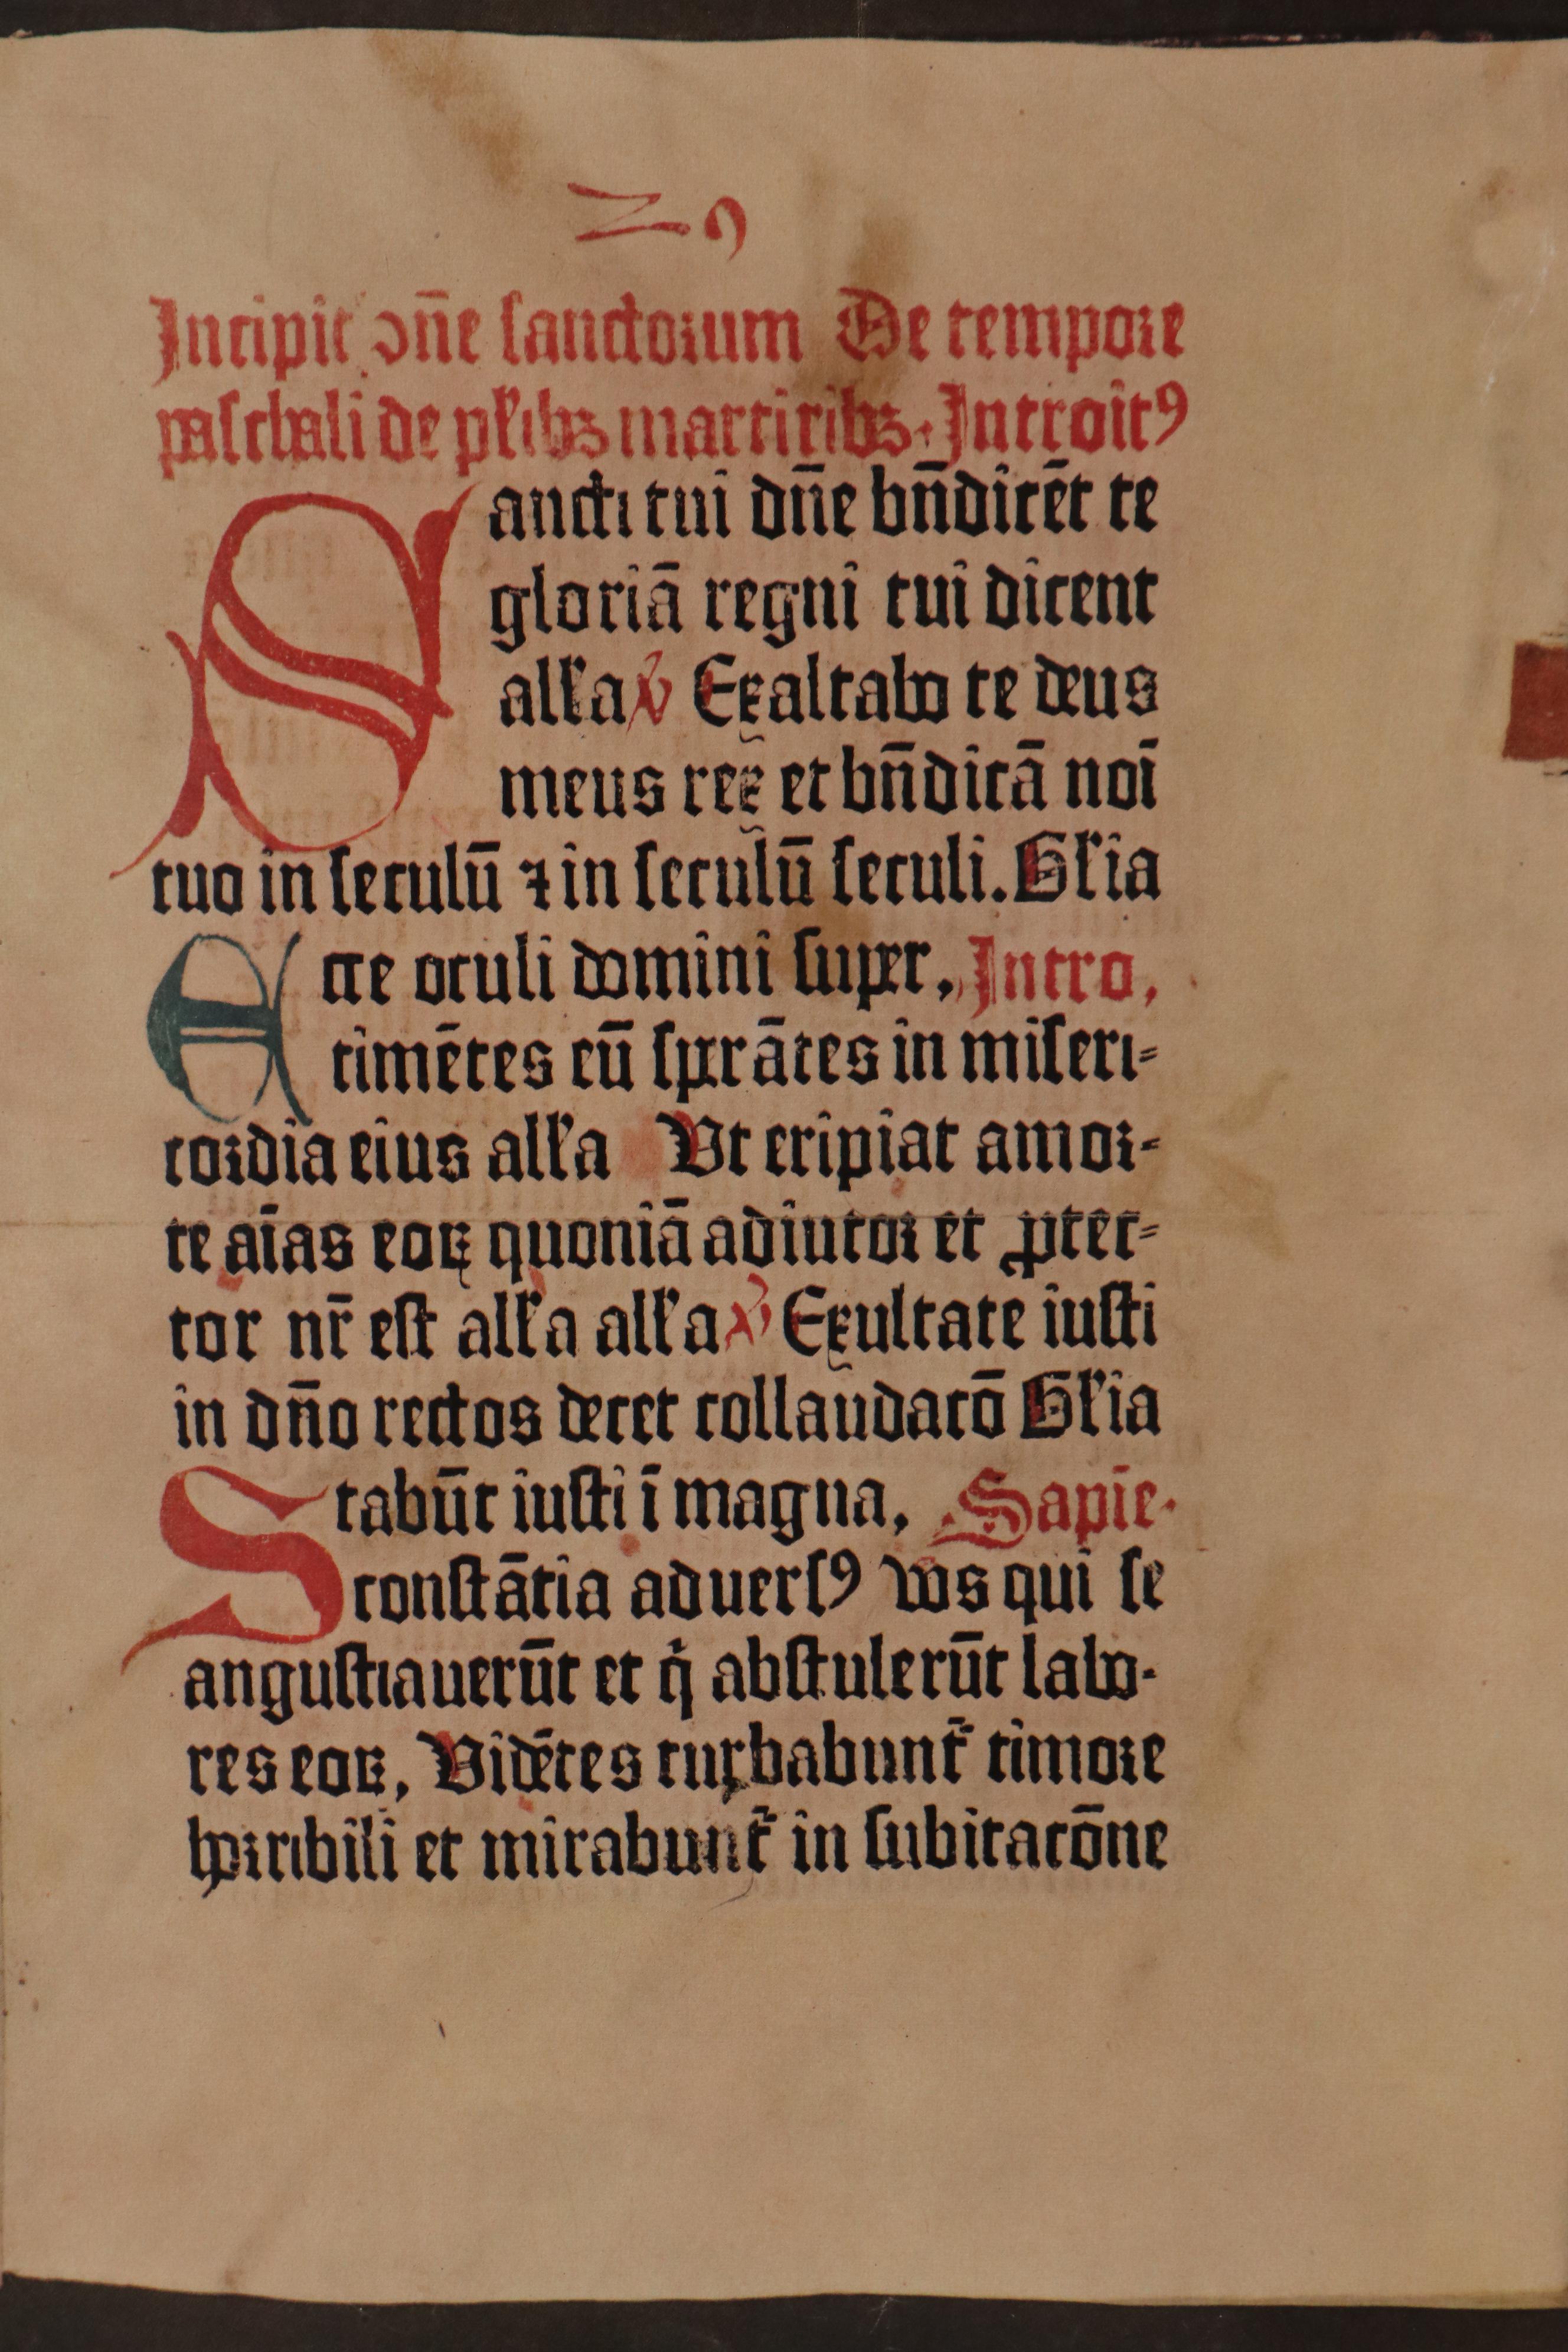 Incipit ꝯn̄e sanctorum De tempore
paschali de pl̓ibꝫ martiribꝫ. Introitꝰ
Sancti tui dn̄e bn̄dicēt te
gloriā regni tui dicent
all̓a ℣ Exaltabo te deus
meus rex et bn̄dicā noī
tuo in seculū ⁊ in seculū seculi. Gl̓ia
Ecce oculi domini super, Intro,
timētes eū sperātes in miseri-
cordia eius all̓a Vt eripiat a mor-
te aīas eoꝝ quoniā adiutor et ꝓtec-
tor nr̄ est all̓a all̓a ℣ Exultate iusti
in dn̄o rectos decet collaudacō Gl̓ia
Stabūt iusti ī magna, Sapīe.
constātia aduersꝰ vos qui se
angustiauerūt et qͥ abstulerūt labo-
res eoꝝ, Vidētes turbabunt᷑ timore
horribili et mirabunt᷑ in subitacōne